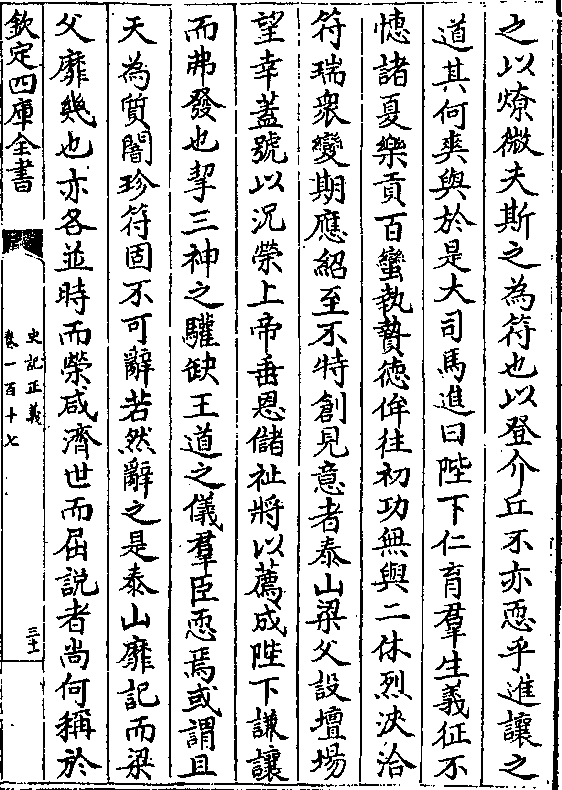 之以燎微夫斯之為符也以登介丘不亦恧乎進讓之
道其何爽與於是大司馬進曰陛下仁育羣生義征不
憓諸夏樂貢百蠻執贄德侔往初功無與二休烈浹洽
符瑞衆變期應紹至不特創見意者泰山梁父設壇場
望幸蓋號以況榮上帝垂恩儲祉將以薦成陛下謙讓
而弗發也挈三神之驩缺王道之儀羣臣恧焉或謂且
天為質闇珍符固不可辭若然辭之是泰山靡記而梁
父靡幾也亦各並時而榮咸濟世而屈說者尚何稱於
欽定四庫全書
史記正義
卷一百十七